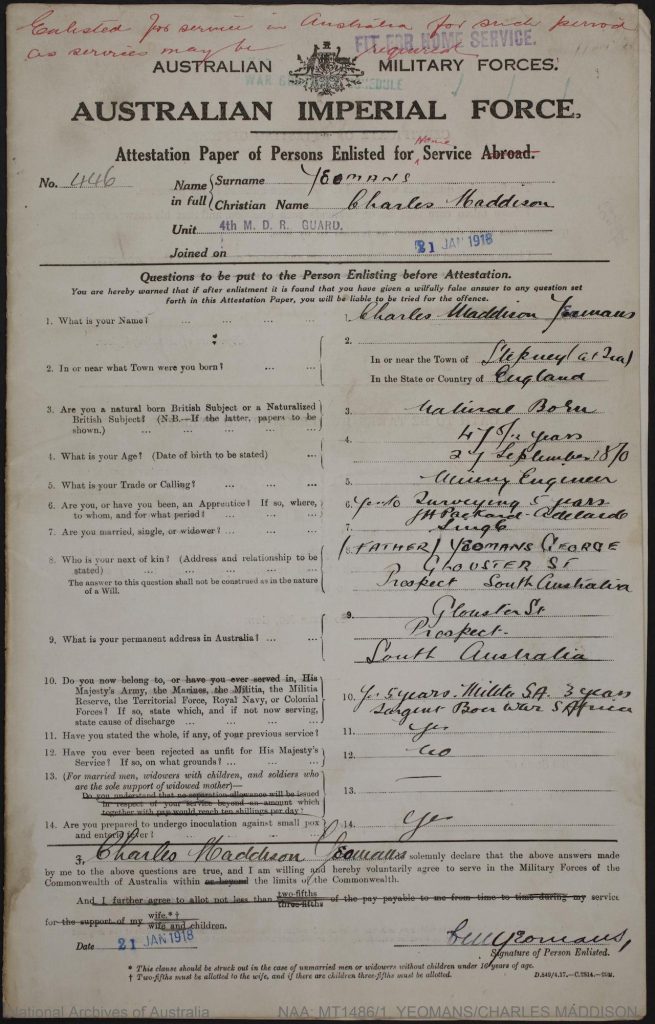 Enlisted for service in Australia for such period
as services may be required
FIT FOR HOME SERVICE.
AUSTRALIAN MILITARY FORCES.
AUSTRALIAN IMPERIAL FORCE.
Attestation Paper of Persons Enlisted for Home Service Abroad.
No. 446
Name in full
Surname YEOMANS
Christian Name Charles Maddison
Unit 4th M. D. R. GUARD.
Joined on 21 JAN 1918
Questions to be put to the Person Enlisting before Attestation.
You are hereby warned that if after enlistment it is found that you have given a wilfully false answer to any question set
forth in this Attestation Paper, you will be liable to be tried for the offence.
1. What is your Name? ... ... ... 1. Charles Maddison Yeomans
2. In or near what Town were you born? ... ... 2. In or near the Town of Stepney (at Sea)
In the State or Country of England
3. Are you a natural born British Subject or a Naturalized
British Subject? (N.B.—If the latter, papers to be
shown.) ... ... ... ... 3. Natural Born
4. What is your Age? (Date of birth to be stated) ... 4. 47 5/12 years
27 September 1870
5. What is your Trade or Calling? ... ... ... 5. Mining Engineer
6. Are you, or have you been, an Apprentice? If so, where,
to whom, and for what period? ... ... ... 6. Surveying 5 years
JH Packard Adelaide
7. Are you married, single, or widower? ... ... 7. Single
8. Who is your next of kin? (Address and relationship to be
stated) ... ... ... ...
The answer to this question shall not be construed as in the nature
of a Will.
8. (FATHER) YEOMANS GEORGE
GLOUSTER ST
Prospect South Australia
9. What is your permanent address in Australia? ... ... 9. Glouster St
Prospect.
South Australia
10. Do you now belong to, or have you ever served in, His
Majesty's Army, the Marines, the Militia, the Militia
Reserve, the Territorial Force, Royal Navy, or Colonial
Forces? If so, state which, and if not now serving,
state cause of discharge ... ... ... 10. 5 years. Milita S.A. 3 years
Sargent Boer War S Africa
11. Have you stated the whole, if any, of your previous service? 11. Yes
12. Have you ever been rejected as unfit for His Majesty's
Service? If so, on what grounds? ... ... ... 12. No
13. (For married men, widowers with children, and soldiers who
are the sole support of widowed mother)—
Do you understand that no separation allowance will be issued
in respect of your service beyond an amount which
together with pay would reach ten shillings per day? 13. —
14. Are you prepared to undergo inoculation against small pox
and enteric fever? ... ... ... ... 14. Yes
I, Charles Maddison Yeomans solemnly declare that the above answers made
by me to the above questions are true, and I am willing and hereby voluntarily agree to serve in the Military Forces of the
Commonwealth of Australia within or beyond the limits of the Commonwealth.
And I further agree to allot not less than two-fifths three-fifths of the pay payable to me from time to time during my service
for the support of my wife.*†
wife and children.
Date 21 JAN 1918
CM Yeomans,
Signature of Person Enlisted.
* This clause should be struck out in the case of unmarried men or widowers without children under 16 years of age.
† Two-fifths must be allotted to the wife, and if there are children three-fifths must be allotted.
D.849/4.17.—C.2814.—
National Archives of Australia
NAA: MT1486/1, YEOMANS/CHARLES MADDISON